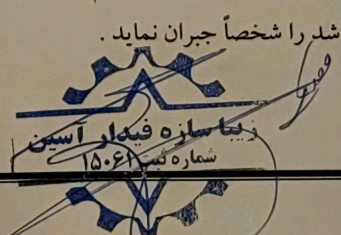 شد را شخصاً جبران نماید .
زیبا سازه فیدار آسین
شماره ثبت ۱۵۰۶۱